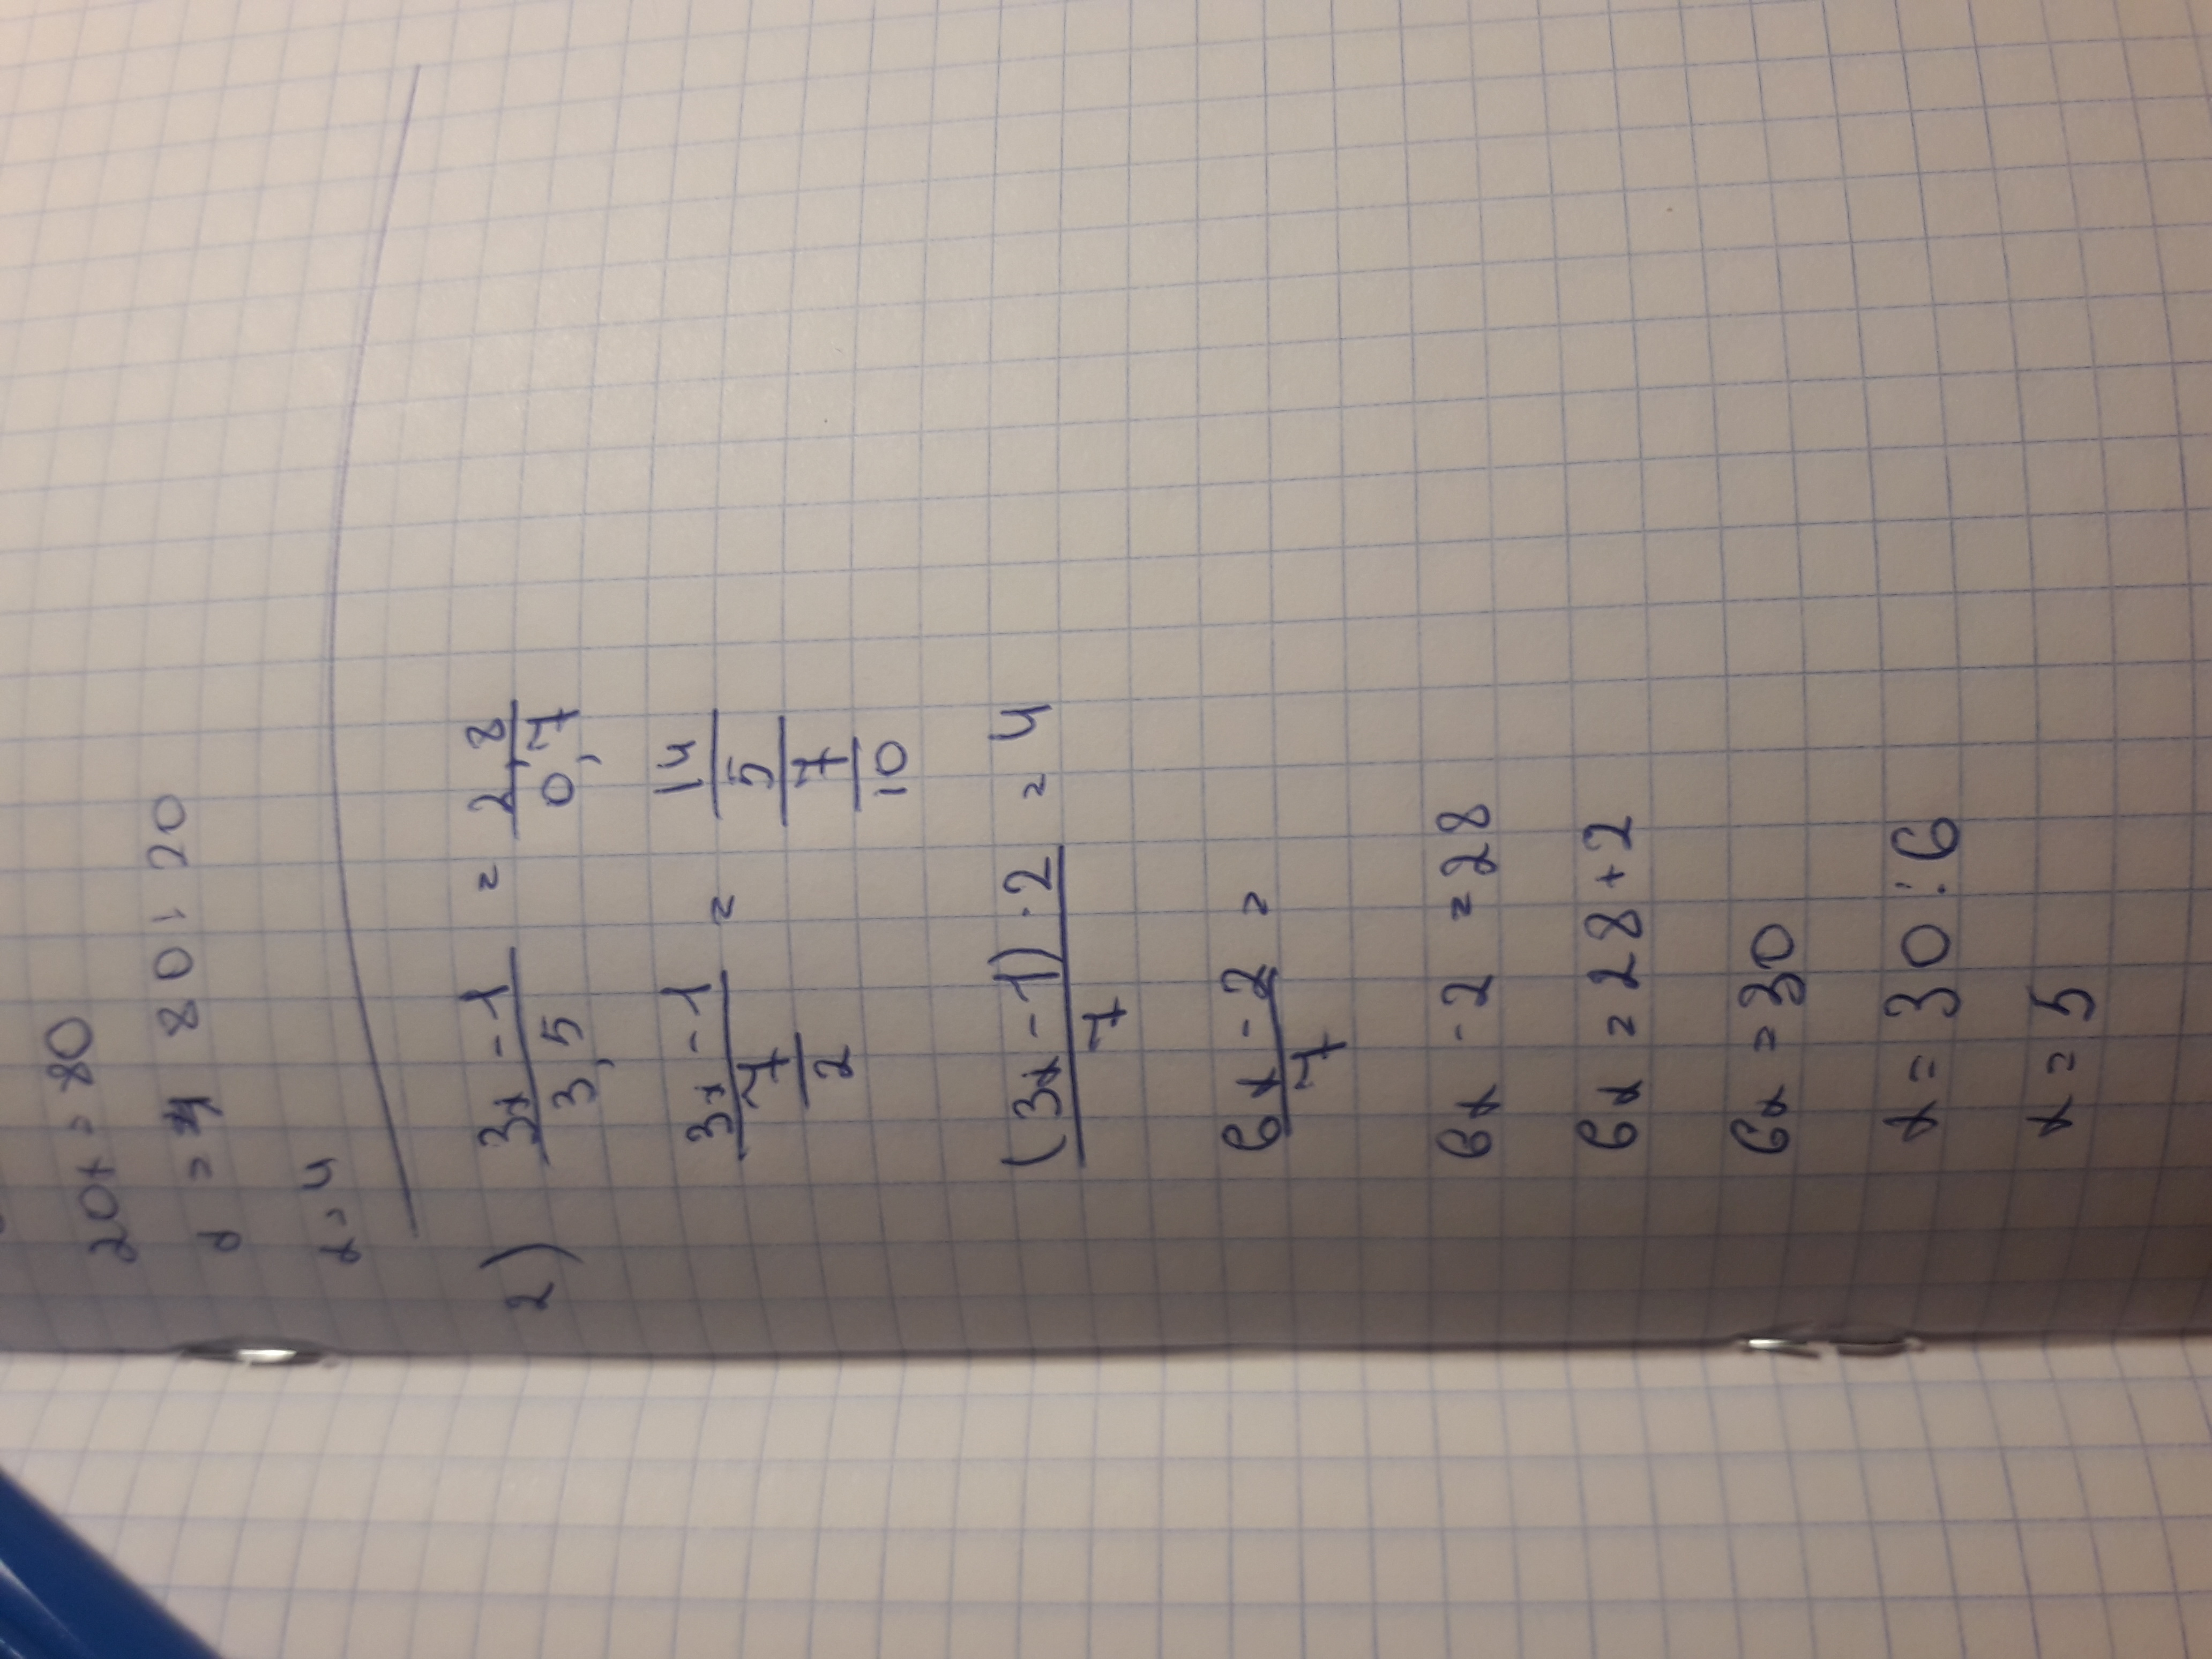 20x = 80
x = 4 80 : 20
x = 4
2) (3x - 1)/3,5 = 2,8/0,7
(3x - 1)/(7/2) = (14/5)/(7/10)
((3x - 1) · 2)/7 = 4
(6x - 2)/7 =
6x - 2 = 28
6x = 28 + 2
6x = 30
x = 30 : 6
x = 5